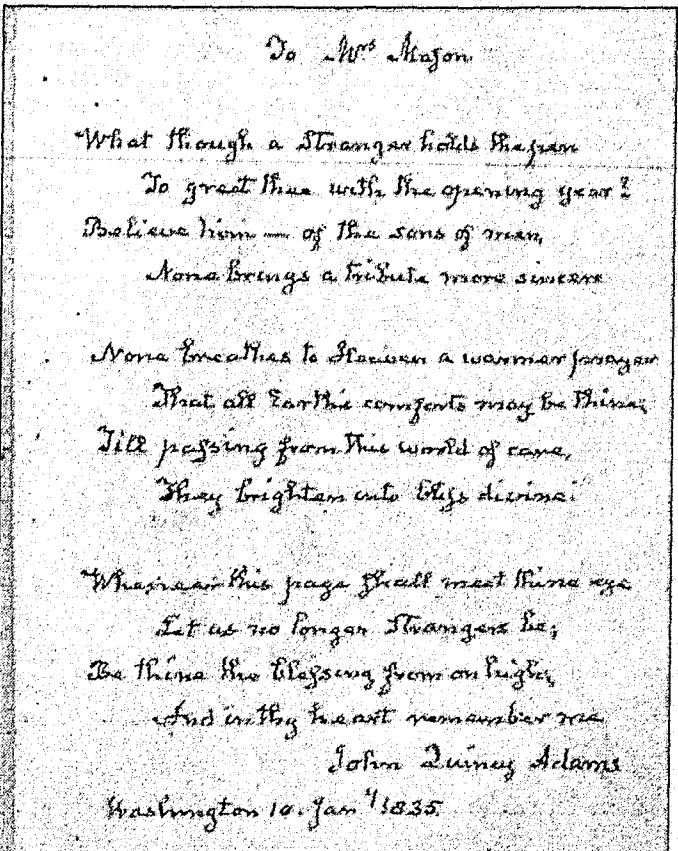 To Mrs Mason
What though a Stranger holds the pen
To greet thee with the opening year?
Believe him — of the sons of men,
None brings a tribute more sincere
None breathes to Heaven a warmer prayer
That all Earth's comforts may be thine;
Till passing from this world of care,
They brighten into bliss divine.
Whene'er this page shall meet thine eye
Let us no longer Strangers be;
Be thine the blessing from on high,
And in thy heart remember me
John Quincy Adams
Washington 10. Jany 1835.